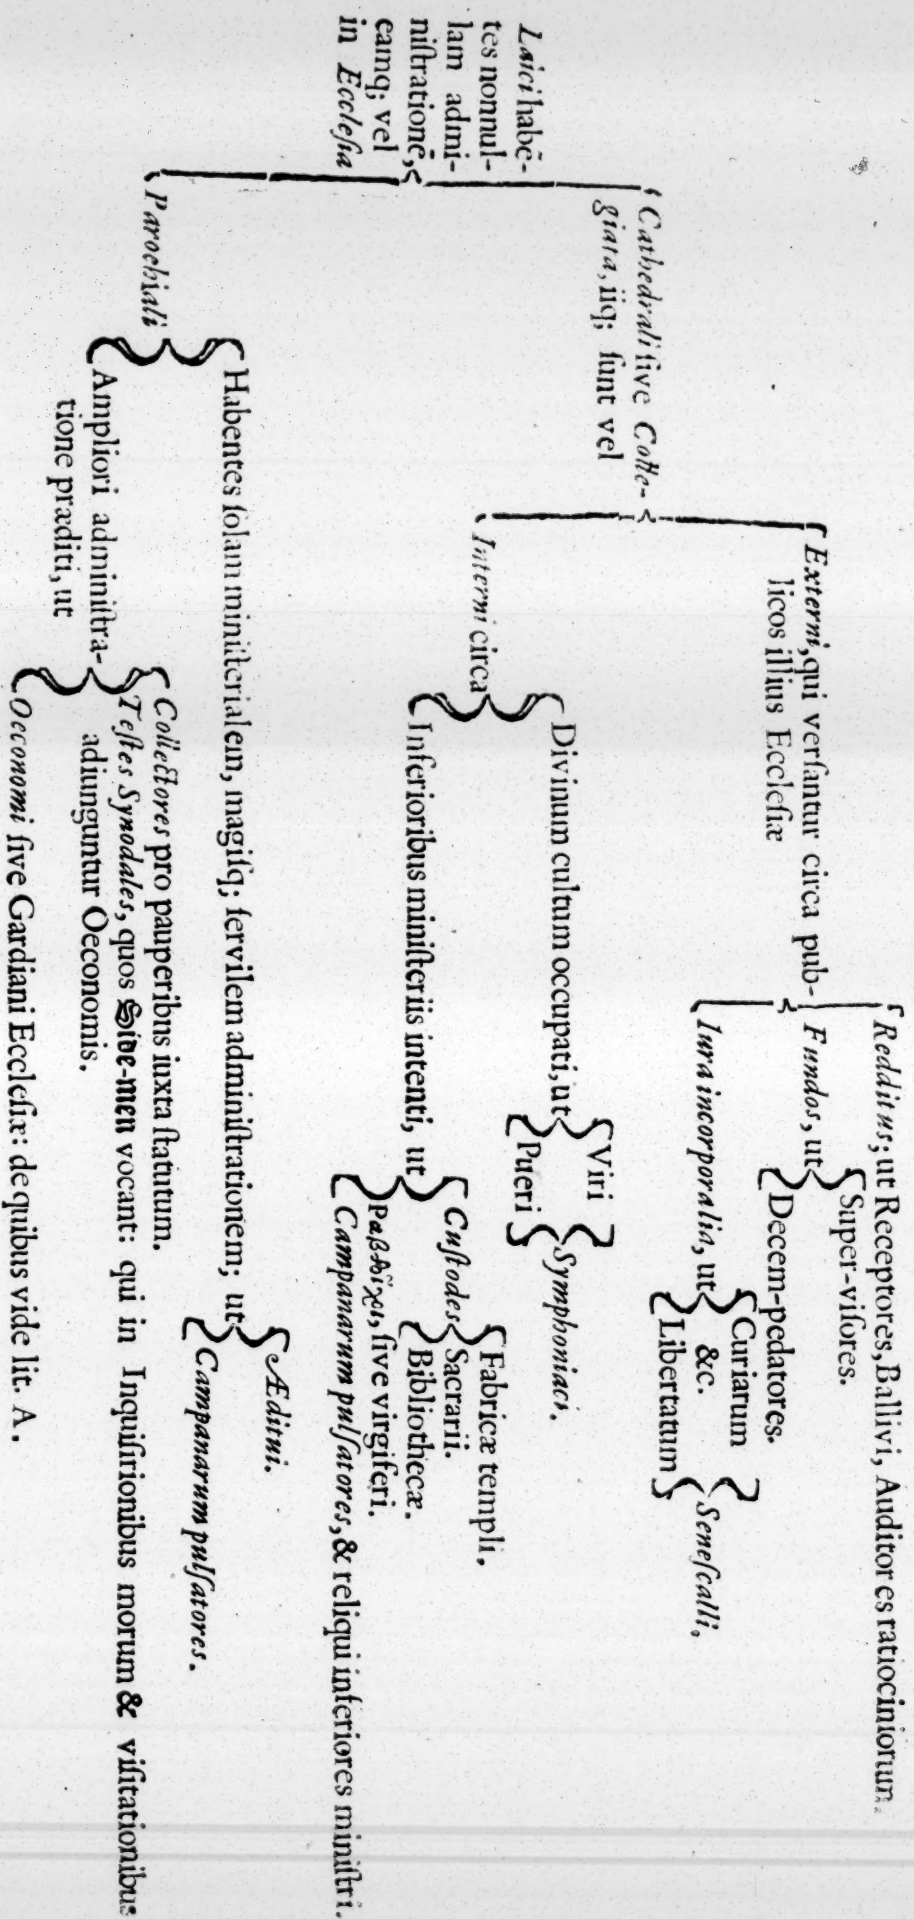 Laici habē-
tes nonnul-
lam admi-
niſtrationē,
eamq; vel
in Eccleſia
Cathedrali ſive Colle-
giata, iiq; ſunt vel
Externi, qui verſantur circa pub-
licos illius Eccleſiæ
Redditus; ut Receptores, Ballivi, Auditores ratiociniorum.
Fundos, ut
Super-viſores.
Decem-pedatores.
Iura incorporalia, ut
Curiarum
&c.
Libertatum
Seneſcalli.
Interni circa
Divinum cultum occupati, ut
Viri
Pueri
Symphoniaci.
Inferioribus miniſteriis intenti, ut
Cuſtodes
Fabricæ templi.
Sacrarii.
Bibliothecæ.
ſive virgiferi.
Campanarum pulſatores, & reliqui inferiores miniſtri.
Parochiali
Habentes ſolam miniſterialem, magiſq; ſervilem adminiſtrationem; ut
Æditui.
Campanarum pulſatores.
Ampliori adminiſtra-
tione præditi, ut
Collectores pro pauperibus iuxta ſtatutum.
Teſtes Synodales, quos Side-men vocant: qui in Inquiſitionibus morum & viſitationibus
adiunguntur Oeconomis.
Oeconomi ſive Gardiani Eccleſiæ: de quibus vide lit. A.